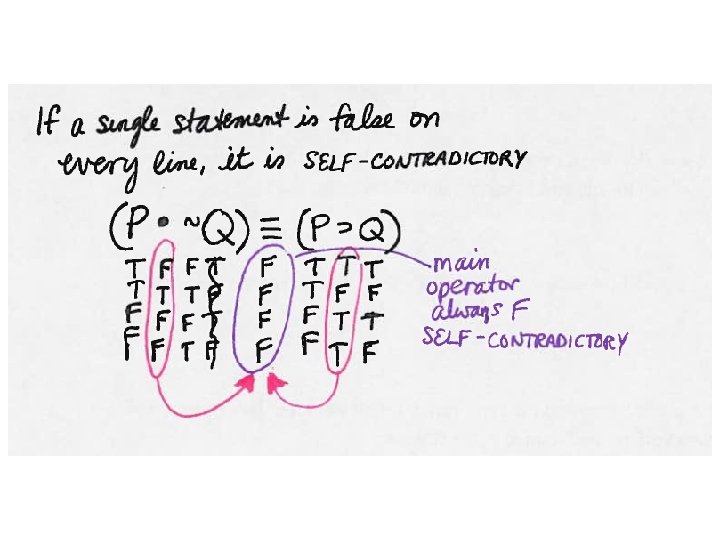 If a single statement is false on
every line, it is SELF-CONTRADICTORY
(P • ~Q) ≡ (P ⊃ Q)
T F F T F T T T
T T T F F T F F
F F F T F F T T
F F T F F F T F
main
operator
always F
SELF-CONTRADICTORY